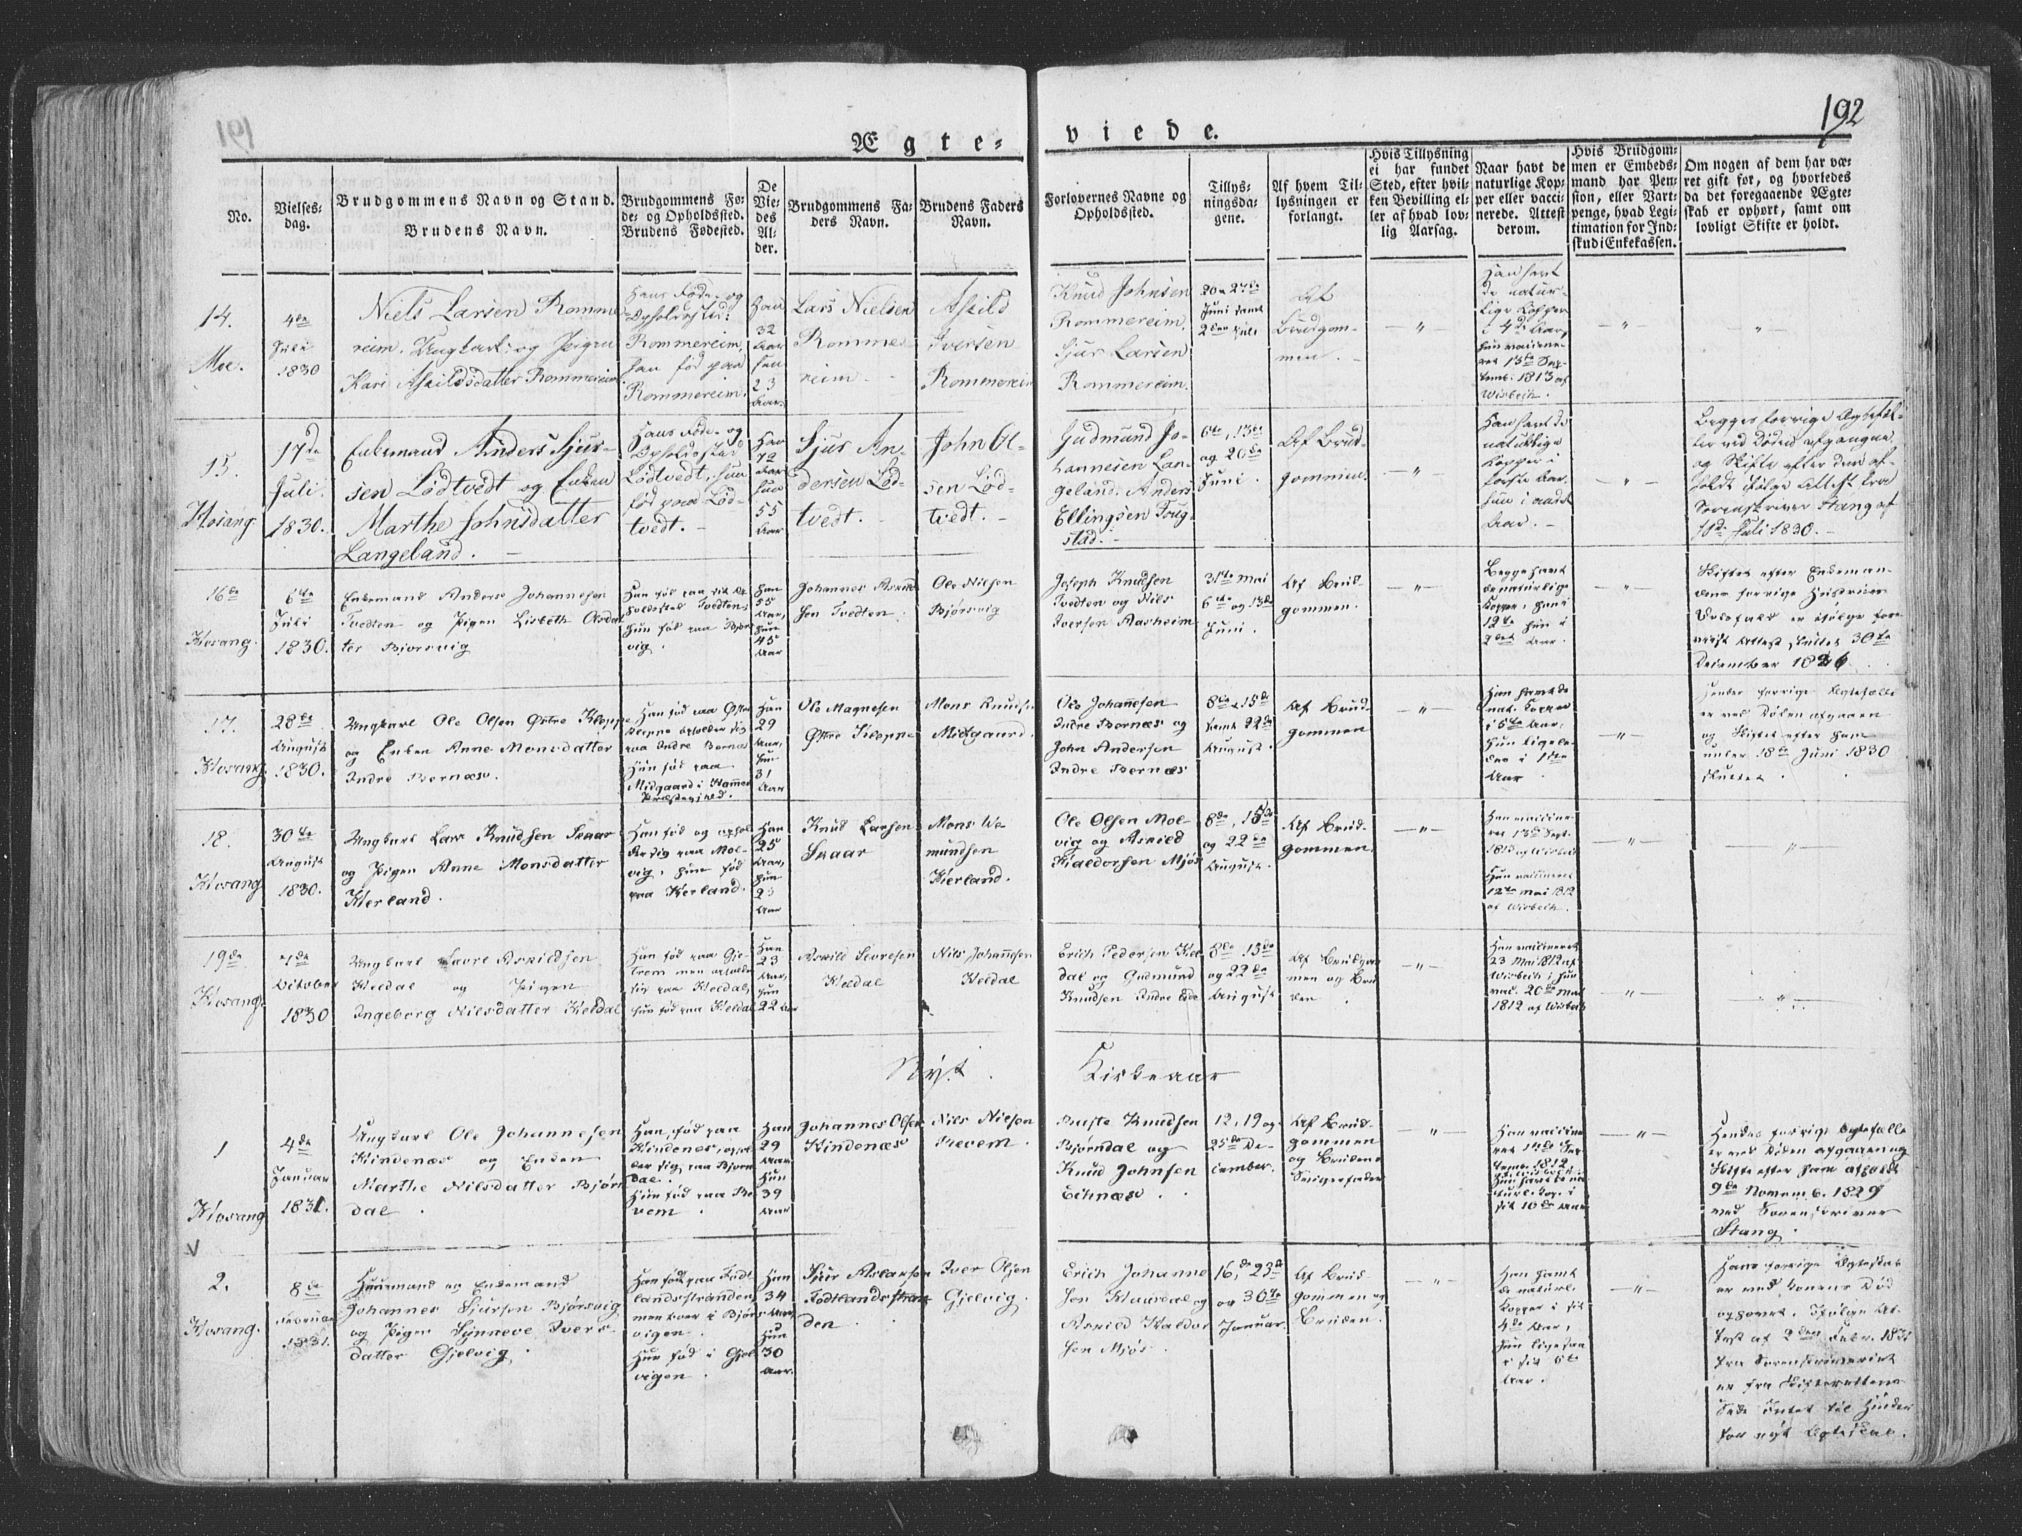 192
Ægteviede.
No.
Vielsesdag.
Brudgommens Navn og Stand.
Brudens Navn.
Brudgommens Føde- og Opholdssted.
Brudens Fødested.
De Viedes Alder.
Brudgommens Faders Navn.
Brudens Faders Navn.
Forlovernes Navne og Opholdssted.
Tillysningsdagene.
Af hvem Tillysningen er forlangt.
Hvis Tillysning ei har fundet Sted, efter hvilken Bevilling eller af hvad lovlig Aarsag.
Naar havt de naturlige Kopper eller vaccinerede. Attest derom.
Hvis Brudgommen er Embedsmand har Pension, eller Vartpenge, hvad Legitimation for Indskud i Enkekassen.
Om nogen af dem har været gift før, og hvorledes da det foregaaende Ægteskab er ophørt, samt om lovligt Skifte er holdt.
14.
Moe.
4de
Juli
1830
Niels Larsen Romme
reim. Ungkarl og Pigen
Kari Askildsdatter Rommereim
Hans Føde- og
Opholdssted:
Rommereim,
hun fød paa
Rommereim.
Han
32
Aar
hun
23
Aar.
Lars Nielsen
Romme
reim
Askild
Iversen
Rommereim
Knud Johnsen
Rommereim.
Sjur Larsen
Rommereim.
20 27de
Juni samt
Af
Brudgom-
men.
Han havt
de natur-
lige Kopper
i 4de Aar,
hun vaccine-
ret 13de Sep-
temb. 1813 af
Wisbech.
15.
Hosang.
17de
Juli
1830.
Enkemand Anders Sjur-
sen Lødtvedt og Enken
Marthe Johnsdatter
Langeland.
Hans Føde- og
Opholdssted
Lødtvedt, hun
fød paa Lød-
tvedt.
Han
72
Aar
hun
55
Aar
Sjur An-
dersen Lød-
tvedt.
John Ol-
sen Lød-
tvedt.
Gudmund Jo-
hannesen Lan-
geland. Anders
Ellingsen Toug-
stad.
6te, 13de
og 20de
Juni.
Af Brud-
gommen.
Han havt de
naturlige
Kopper i
første Aar.
hun i andet
Aar.
Begges forrige Ægtefæl-
ler ved Døden afgangne
og Skifte efter dem af-
holdt ifølge Attest fra
Sorenskriver Stang af
1de Juli 1830.
16de
Hosang.
6te
Juli
1830.
Enkemand Anders Johannesen
Tvedten og Pigen Lisbeth Olsdat
ter Bjorsvig
Hun fød paa Bjors
vig.
Han
55
Aar,
Hun
45
Aar
Johannes
sen Tvedten.
Ole Nilsen
Bjørsvig
Joseph Knudsen
Tvedten og Nils
Iverson Aasheim
31te Mai
6te og 13de
Juni.
Af Brud
gommen.
Begge havt
de naturlige
Kopper, han i
12te hun i
2det Aar.
Skiftet efter Enkeman-
dens forrige
er ifølge
Attest sluttet 30te
December 1826.
17.
Hosang.
28de
August
1830.
Ungkarl Ole Olsen Østre Kleppe
og Enken Anne Monsdatter
Indre Bernæs.
Han fød paa Østre
Kleppe opholder sig
paa Indre Bernæs
Hun fød paa
Midgaard i Hammer
Præstegjeld.
Han
29
Aar,
Hun
31
Aar
Ole Magnesen
Østre Kleppe
Mons Knudsen
Midgaard
Ole Johannesen
Indre Bernæs og
John Andersen
Indre Bernæs
8de, 15de
samt 22de
August.
Af Brud
gommen
Han havt de
nat. Kopper
i 5te Aar,
Hun ligele-
des i 1ste
Aar.
Hendes forrige Ægtefælle
er ved Døden afgaaen
og Skiftet efter ham
under 18de Juni 1830
sluttet.
18.
Hosang
30te
August
1830.
Ungkarl Lars Knudsen Skaar
og Pigen Anne Monsdatter
Kierland.
Han fød og ophol
der sig paa Mol-
vig, hun fød
paa Kierland.
Han
25
Aar,
Hun
23
Aar
Knud Larsen
Skaar
Mons We-
mundsen
Kierland.
Ole Olsen Mol-
vig og Askild
Haldorsen Mjøs
8de, 15de
og 22de
August.
Af Brud
gommen.
Han vaccine-
ret 13de Sept.
1813 af Wisbech
Hun vaccineret
12te Mai 1812
af Wisbech.
19de
Hosang.
7de
October
1830
Ungkarl Askildsen
Keldal og Pigen
Ingeborg Nilsdatter Keldal
Han fød paa
men opholder
sig paa Keldal,
hun fød paa Keldal
Han
23
Aar,
Hun
22 Aar
Askild Sevresen
Keldal
Nils Johannesen
Keldal
Erich Pedersen Kel
dal og Gudmund
Knudsen Indre
8de 15de
og 22de
August
Af Brudgom
men og Bru
den.
Han vaccineret
23 Mai 1812 af
Wisbech, hun
vac. 20de Mai
1812 af Wisbech
Nyt Kirkeaar
1
Hosang
4de
Januar
1831.
Ungkarl Ole Johannesen
Hindenæs og Enken
Marthe Nilsdatter Bjørn
dal.
Han fød paa
Hindenes, ophol
der sig paa Bjørn
dal.
Hun fød paa Re
vem.
Han
29
Aar
Hun
39
Aar
Johannes Olsen
Hindenæs
Nils Nilsen
Revem.
Knudsen
Bjørndal og
Knud Johnsen
Eknæs.
12, 19 og
25de De-
cember.
Af Brud
gommen
og Brudens
Svigerfader
Han vaccine
ret 14de Sep
temb. 1812
Hun havt de na
turl. Kop. i
sit 10de Aar
Hendes forrige Ægtefælle
er ved Døden afgaaen og
Skifte efter ham afholdt
9de Novemb. 1829
ved Sorenskriver
Stang.
V
2.
Hosang.
8de
Februar
1831.
Huusmand og Enkemand
Johannes Sjursen Bjørsvig
og Pigen Synneve Ivers
datter Gjelvig.
Han fød paa Født
landsstranden
men boer i Bjørs
vigen.
Hun fød i Gjel
vigen.
Han
34
Aar,
Hun
30
Aar.
Sjur Aslaksen
Fødtlandsstran
den.
Iver Olsen
Gjelvig.
Erich Johanne
sen og
Askild Haldor
sen Mjøs.
16, de 23de
og 30te
Januar.
Af Brud
gommen og
Bruden.
Han havt
de naturl.
Kopper i sit
4de Aar,
hun ligesaa
i sit 6te
Aar.
Hans forrige Ægteskab
er ved Konens Død
ophævet. Ifølge At-
test af 2den Febr. 1831
fra Sorenskriveriet
er fra Skifterettens
Side Intet til Hinder
for nyt Ægteskab.